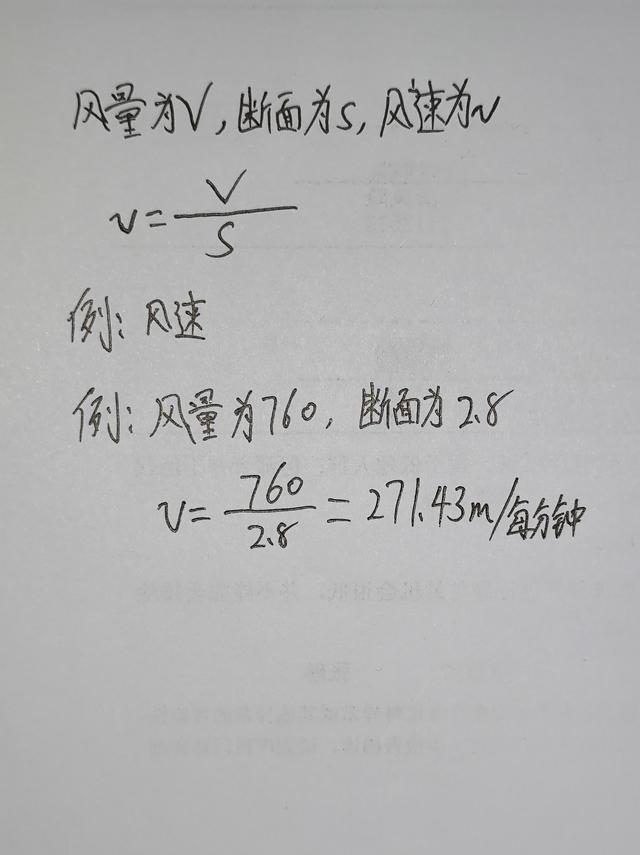 风量为V,断面为S,风速为v
v=V/S
例:风速
例:风量为760,断面为2.8
v=760/2.8=271.43m/每分钟